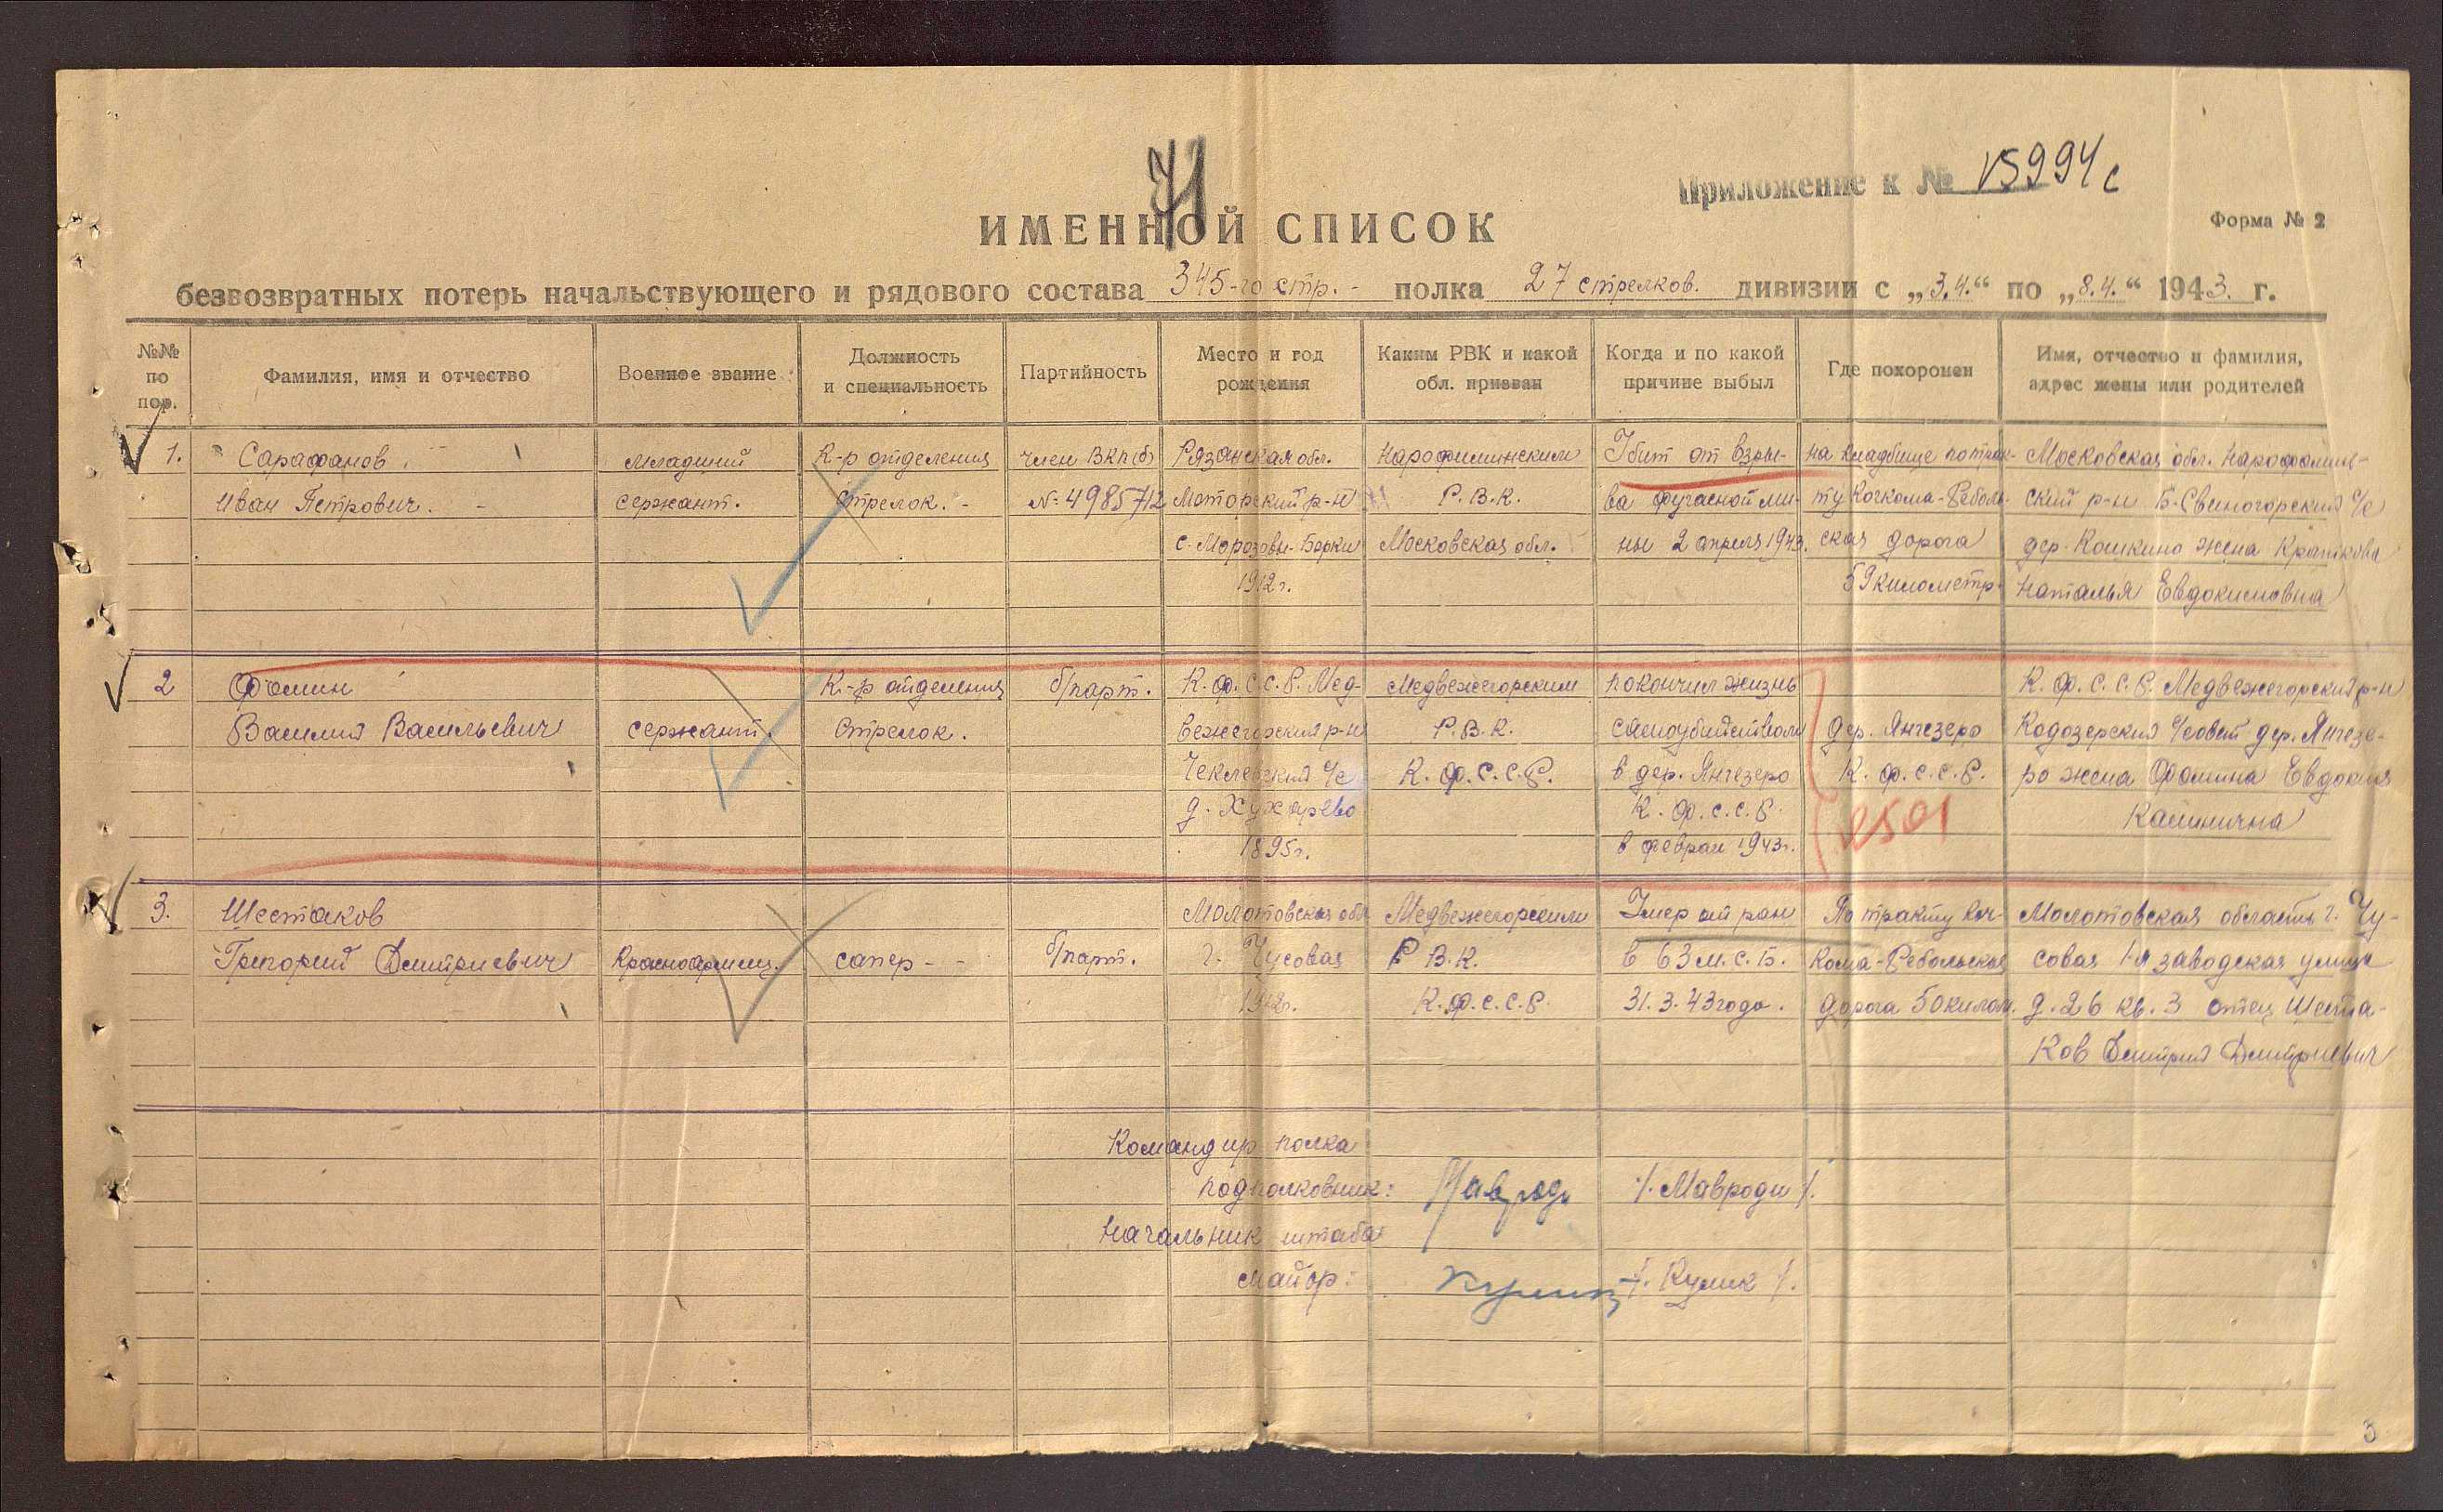 71
Приложение к № 15994с
ИМЕННОЙ СПИСОК
Форма № 2
безвозвратных потерь начальствующего и рядового состава 345-го стр. - полка 27 стрелков. дивизии с „3.4.“ по „8.4.“ 1943. г.
№№ по пор.
Фамилия, имя и отчество
Военное звание
Должность и специальность
Партийность
Место и год рождения
Каким РВК и какой обл. призван
Когда и по какой причине выбыл
Где похоронен
Имя, отчество и фамилия, адрес жены или родителей
1. Сарафанов младший К-р отделения член ВКП(б) Рязанская обл. Нарофоминским Убит от взры- на кладбище по трак- Московская обл. Нарофомин-
Иван Петрович. - сержант. Стрелок. - № 4985712 Моторский р-н Р.В.К. ва фугасной ми- ту Кочкома-Реболь- ский р-н Б-Свиногорский с/с
с. Морозовы-Борки Московская обл. ны 2 апреля 1943. ская дорога дер. Кошкино жена
1912г. 59 километр. Наталья Евдокимовна
2 Фомин К-р отделения б/парт. К.Ф.С.С.Р. Мед- Медвежегорским покончил жизнь К.Ф.С.С.Р. Медвежегорский р-н
Василий Васильевич сержант. Стрелок. вежегорский р-н Р.В.К. самоубийством дер. Янгезеро Кодозерский с/совет дер. Янгезе-
с/с К.Ф.С.С.Р. в дер. Янгезеро К.Ф.С.С.Р. ро жена Фомина Евдокия
д. К.Ф.С.С.Р.
1895г. в феврал 1943г.
3. Шестаков Молотовская обл Медвежегорским Умер от ран По тракту Коч- Молотовская область г. Чу-
Григорий Дмитриевич Красноармеец. сапер - - б/парт. г. Чусовая Р.В.К. в 63 м.с.б. кома-Ребольская совая 1-я заводская улица
1912г. К.Ф.С.С.Р. 31.3.43 года. дорога 50 килом. д. 26 кв. 3 отец Шеста-
ков Дмитрий Дмитриевич
Командир полка
подполковник: Мавроди /. Мавроди /.
Начальник штаба
майор: Кулик /. Кулик /.
3